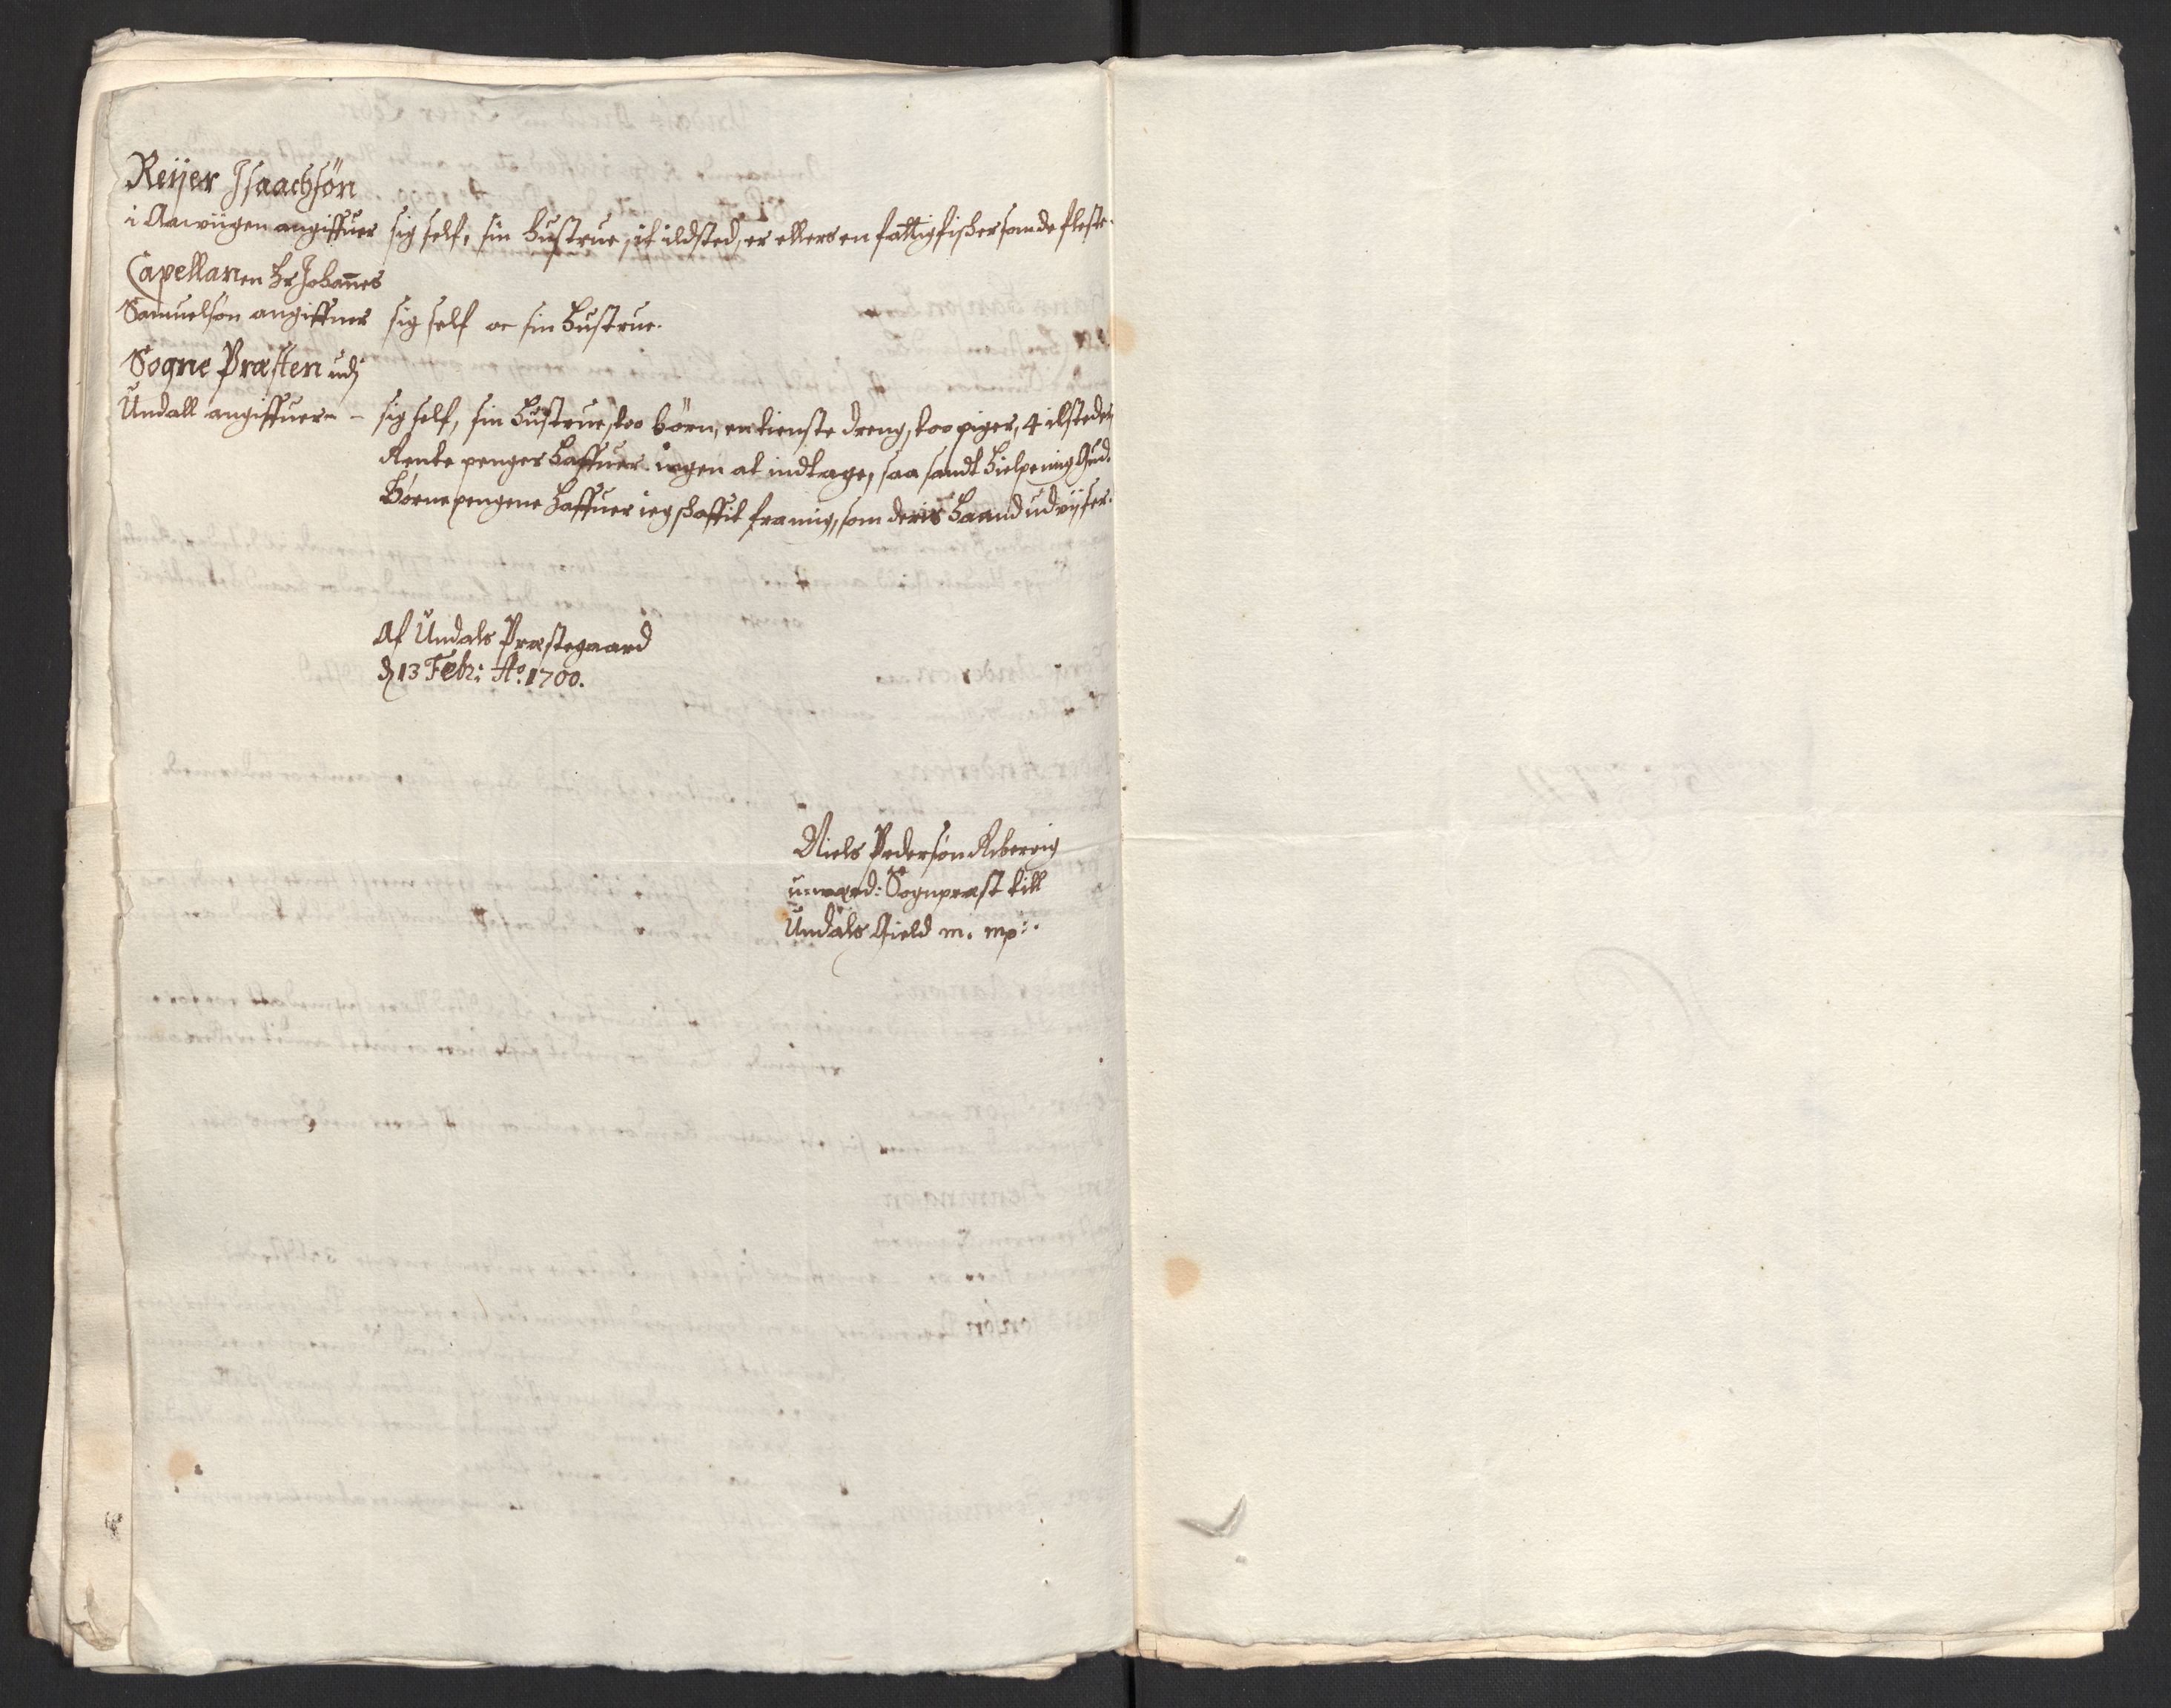 Reijer Isaachsön
i Aawiigen angiffuer sig self, sin hustrue, it ildsted, er ellers en fattig fisker som de fleste.
Capellanen Hr Johanes
Samuelsön angiffuer sig self oc sin hustrue.
Sogne Præsten udj
Undall angiffuer - - sig self, sin hustrue, too börn, en tienste dreng, too piger, 4 ilsteder,
Rente penger haffuer ingen at indtage, saa sandt hielpe mig Gud.
Börnepengene haffuer ieg skaffit fra mig, som deris haand udvijser.
Af Undals Præstegaard
d 13 Febr: Ao. 1700.
Niels Pedersön
u-værd: Sognpræst till
Undals Gield m. mp:.